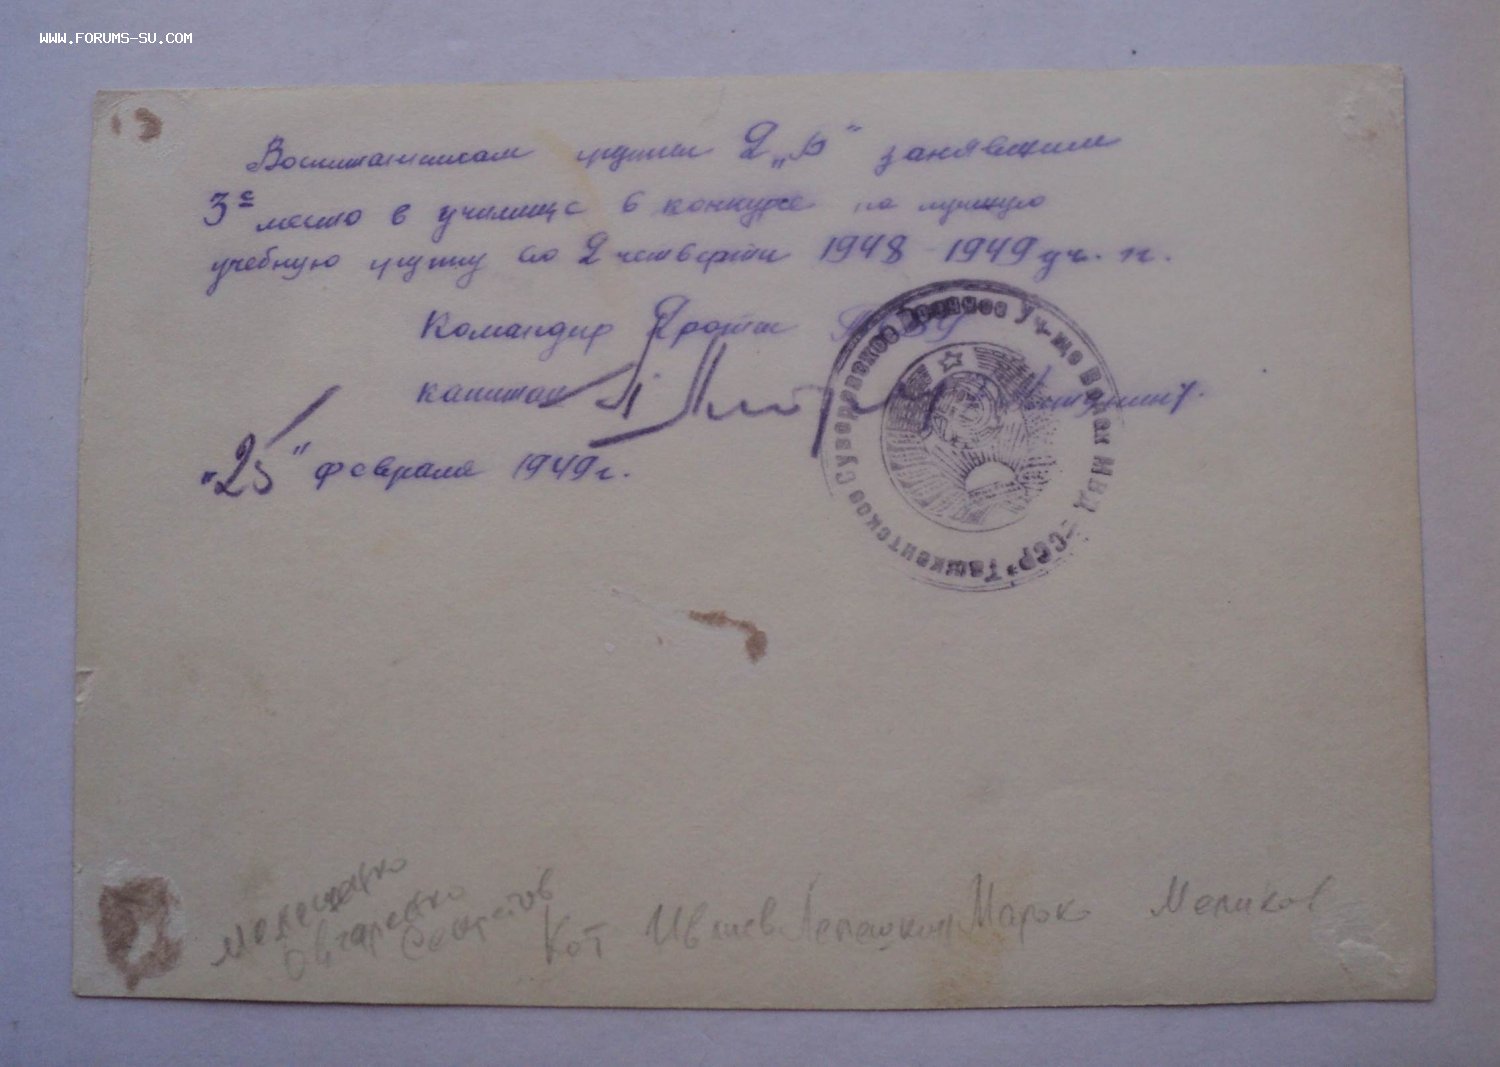 WWW.FORUMS-SU.COM
Воспитанникам группы 2 „Б“ занявшим
3е место в училище в конкурсе на лучшую
учебную группу во 2 четверти 1948-1949 уч. г.
Командир 2 роты
капитан
„25“ февраля 1949 г.
Ташкентское Суворовское Военное Уч-ще Войск МВД СССР
Овчаренко
Секретов
Кот Ивлиев Лепешкин Марока Меликов